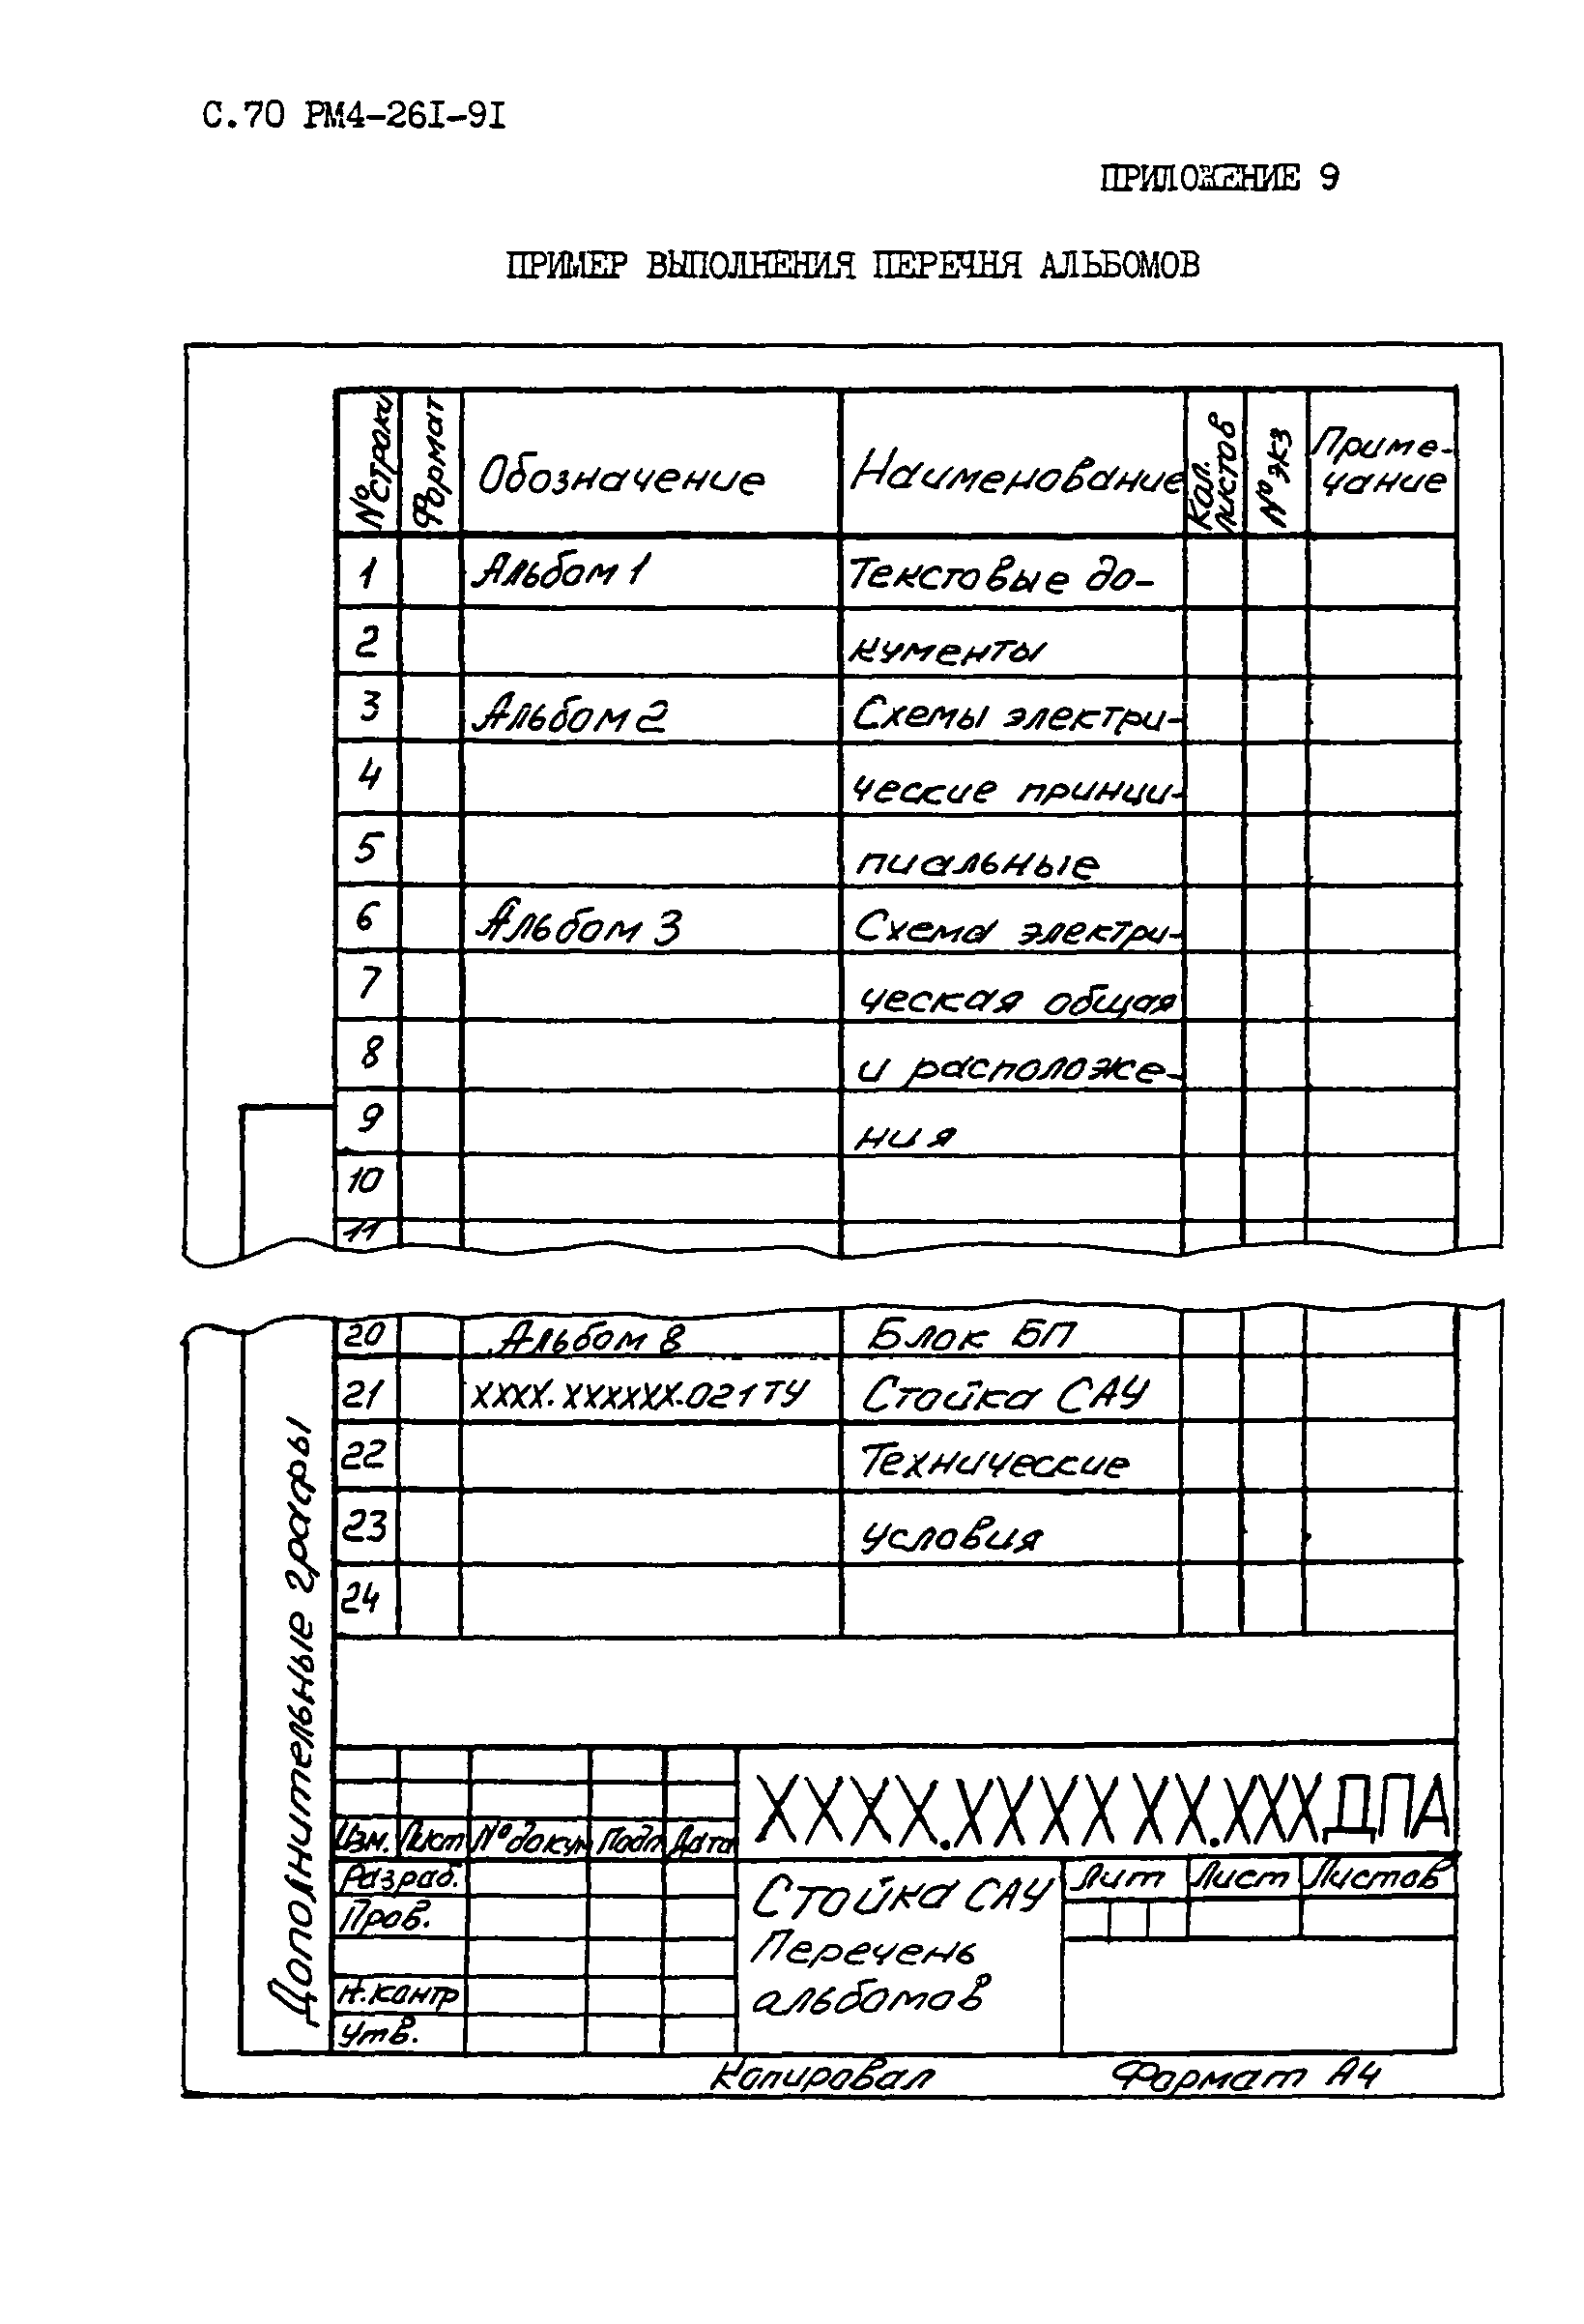 С.70 РМ4-261-91
ПРИЛОЖЕНИЕ 9
ПРИМЕР ВЫПОЛНЕНИЯ ПЕРЕЧНЯ АЛЬБОМОВ
№ строки Формат Обозначение Наименование Кол. листов № экз Приме-
чание
1 Альбом 1 Текстовые до-
2 кументы
3 Альбом 2 Схемы электри-
4 ческие принци-
5 пиальные
6 Альбом 3 Схема электри-
7 ческая общая
8 и расположе-
9 ния
10
11
20 Альбом 8 Блок БП
21 ХХХХ.ХХХХХХ.021ТУ Стойка САУ
22 Технические
23 условия
24
Дополнительные графы
ХХХХ.ХХХХХХ.ХХХДПА
Изм. Лист № докум Подп Дата
Разраб.
Пров.
Н.контр
Утв.
Стойка САУ
Перечень
альбомов
Лит Лист Листов
Копировал Формат А4